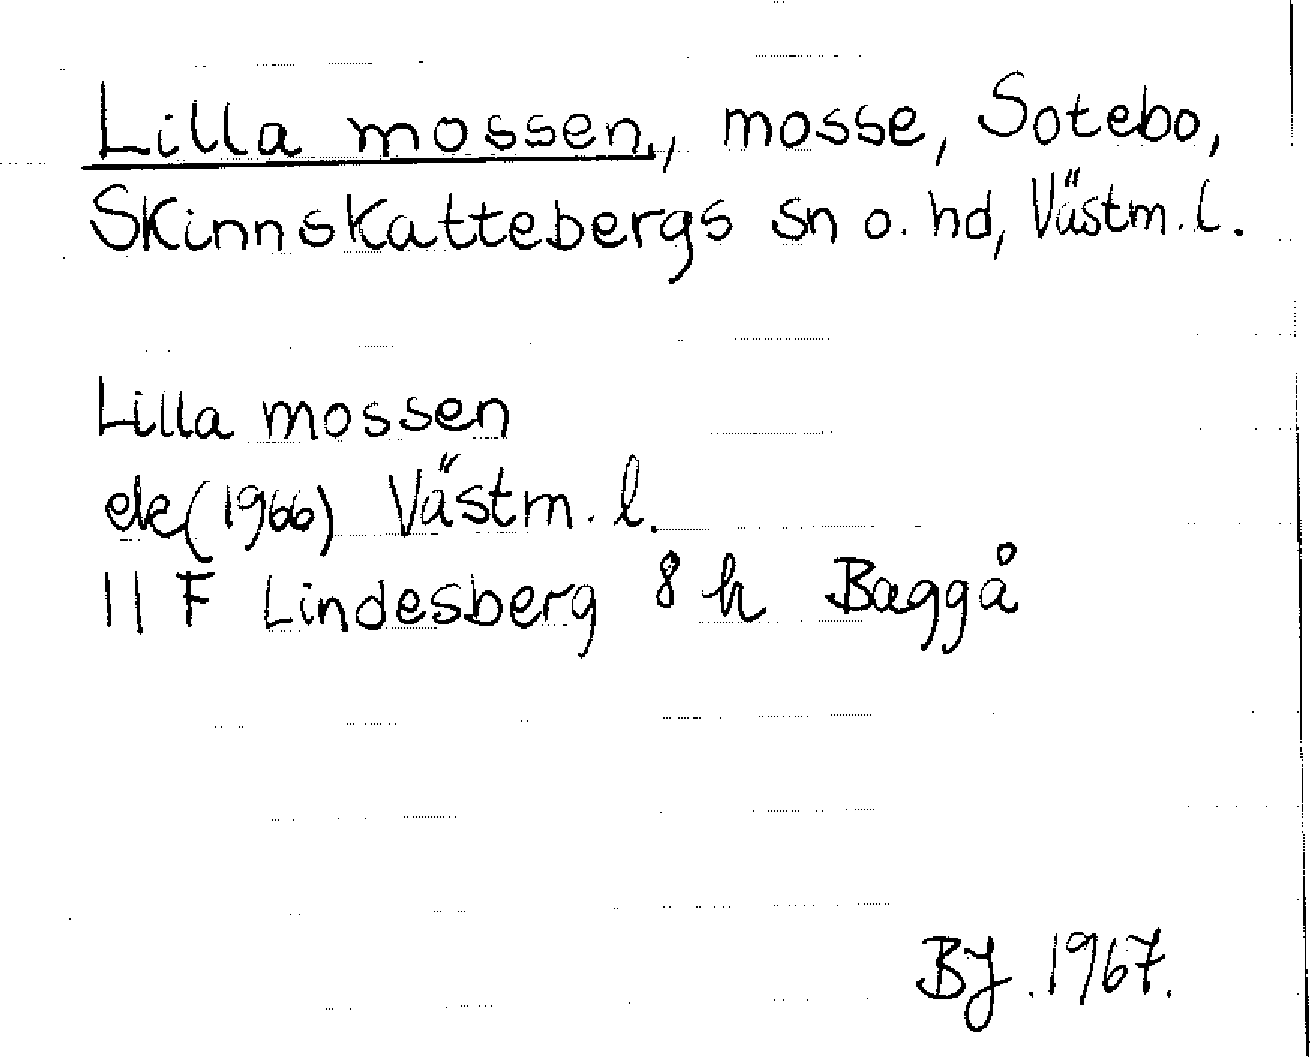 Lilla mossen, mosse, Sotebo,
Skinnskattebergs sn o. hd, Västm. l.
Lilla mossen
ek (1966) Västm. l.
11 F Lindesberg 8 h Baggå
BJ. 1967.